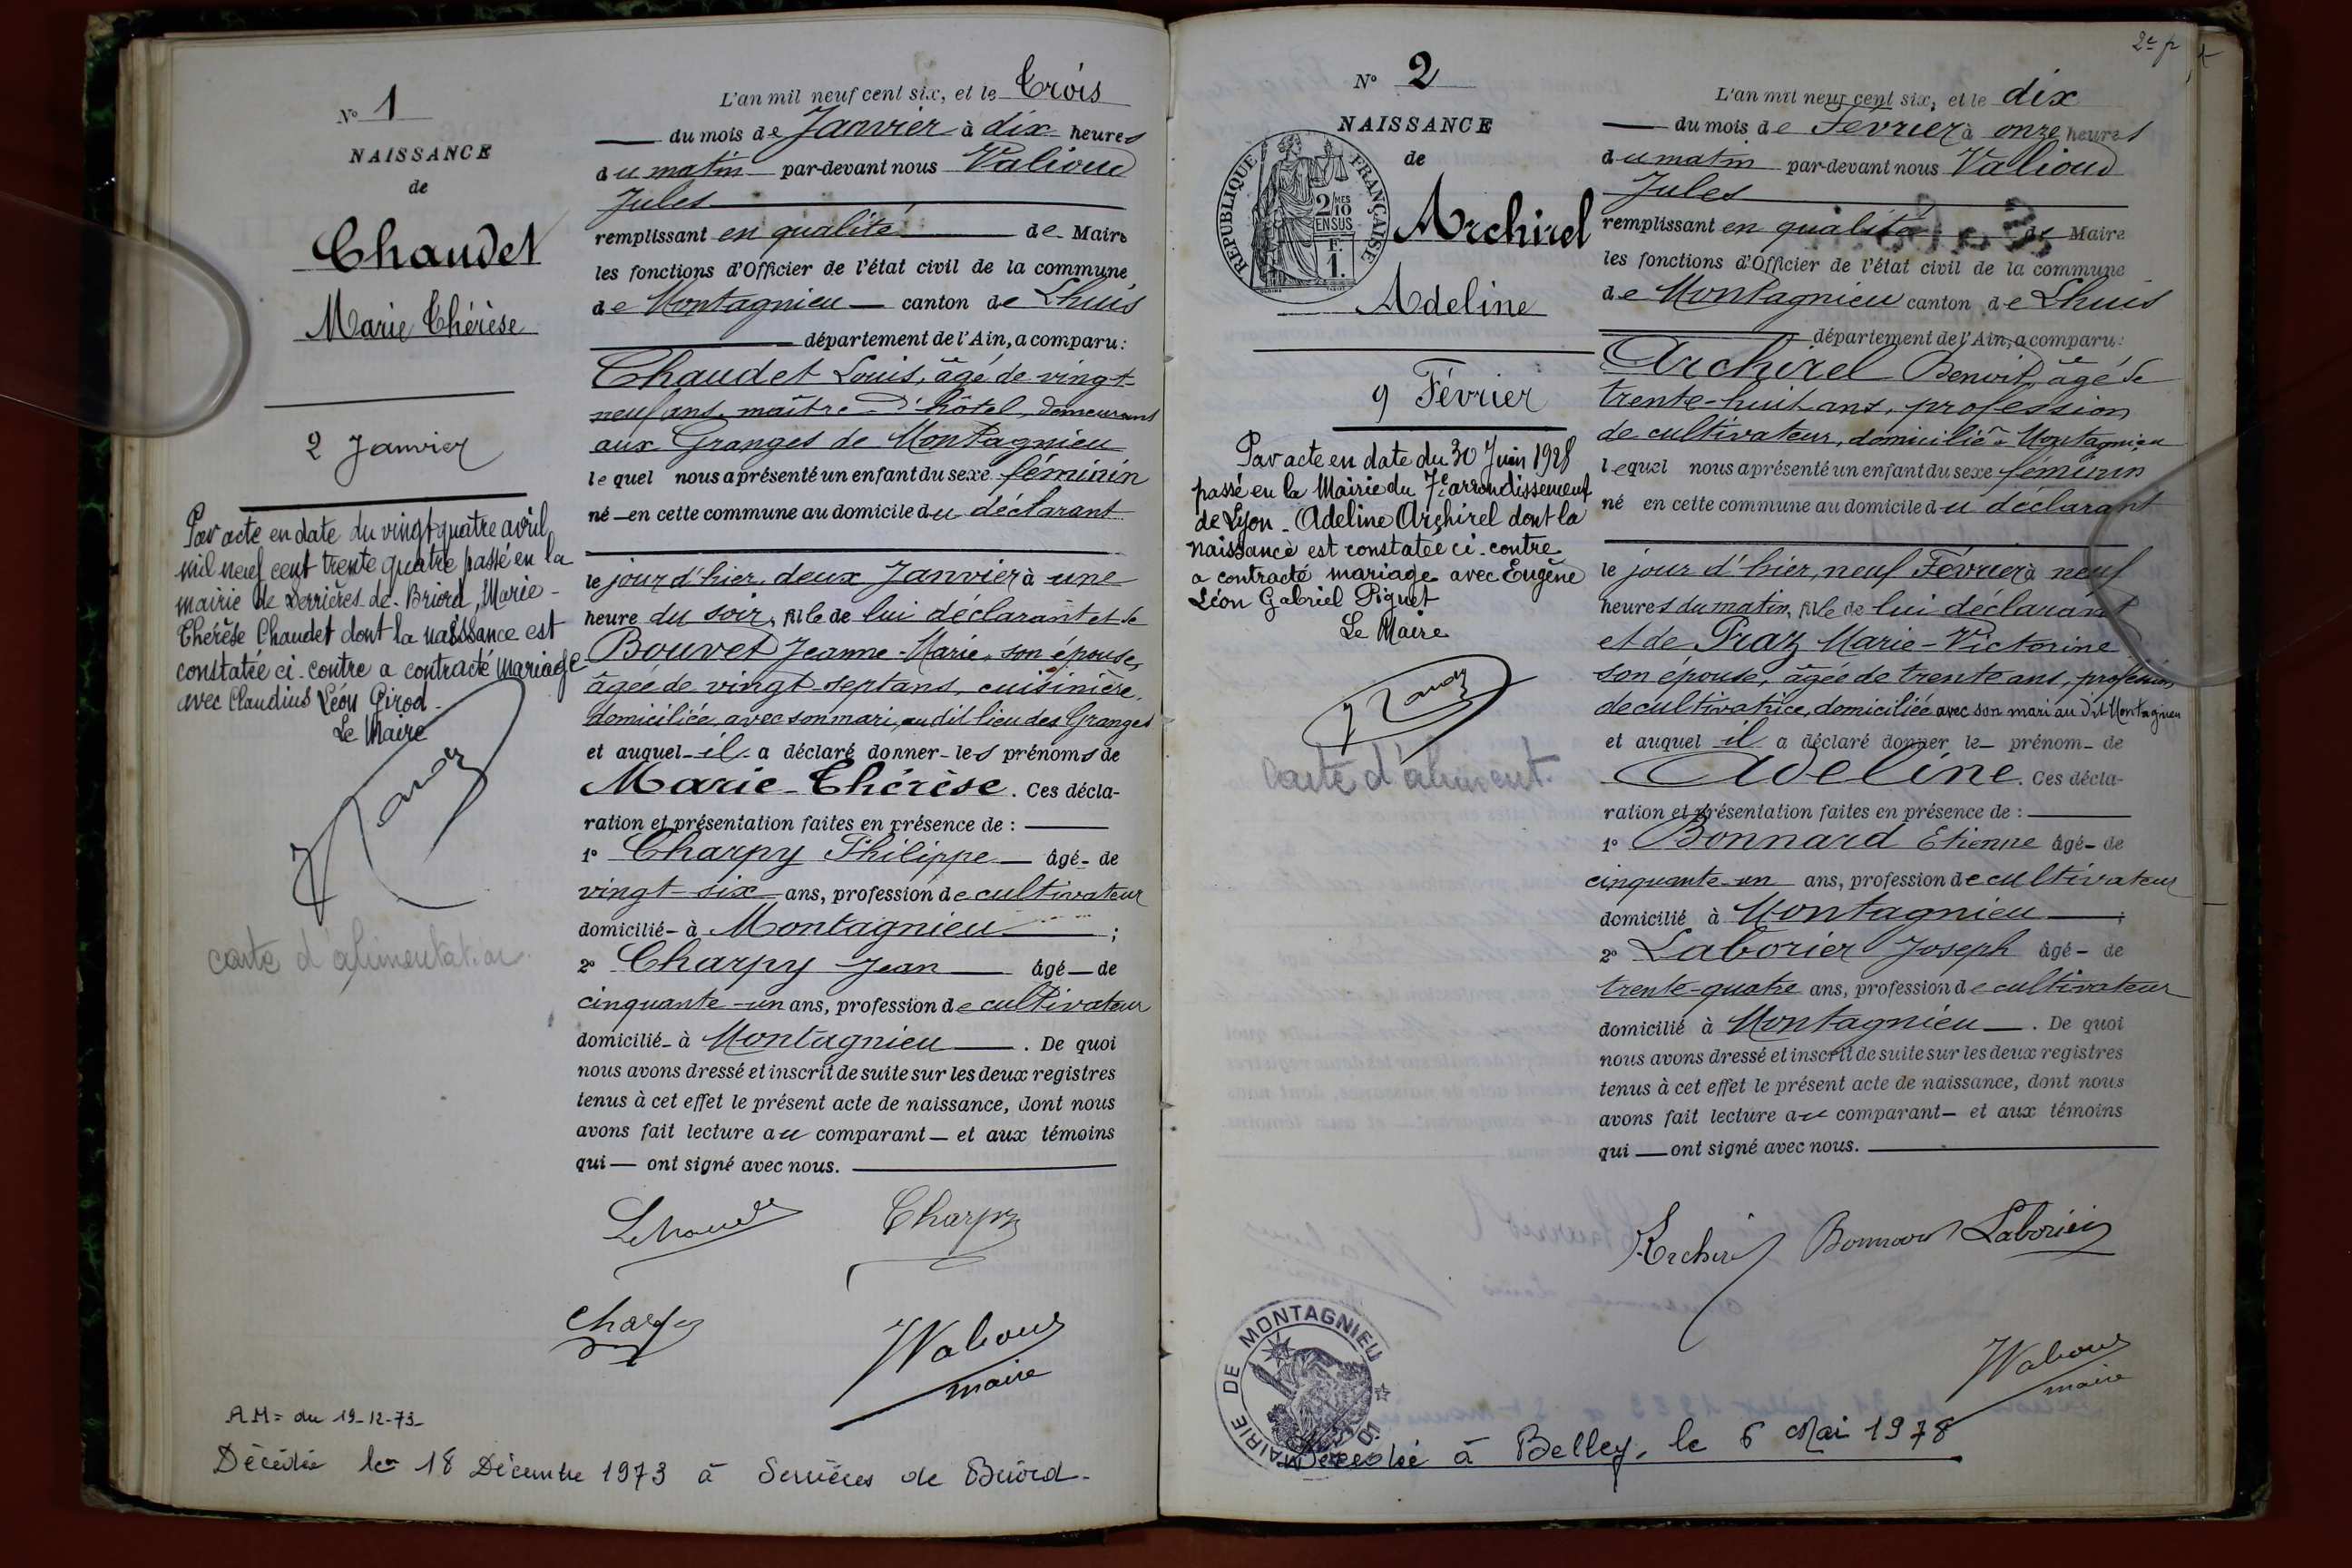 N° 1
NAISSANCE
de
Chaudet
Marie Thérèse
2 Janvier
Par acte en date du vingt quatre avril
mil neuf cent trente quatre passé en la
mairie de Serrières-de-Briord, Marie-
Thérèse Chaudet dont la naissance est
constatée ci-contre a contracté mariage
avec Claudius Léon Girod.
Le Maire
carte d'alimentation
L'an mil neuf cent six, et le Trois
du mois de Janvier à dix heures
du matin par-devant nous Valioud
Jules
remplissant en qualité de Maire
les fonctions d'Officier de l'état civil de la commune
de Montagnieu canton de Lhuis
département de l'Ain, a comparu:
Chaudet Louis, âgé de vingt-
neuf ans, maître d'hôtel, demeurant
aux Granges de Montagnieu
lequel nous a présenté un enfant du sexe féminin
né en cette commune au domicile du déclarant
le jour d'hier, deux Janvier à une
heure du soir, fille de lui déclarant et de
Bouvet Jeanne-Marie, son épouse,
âgée de vingt-sept ans, cuisinière,
domiciliée avec son mari, au dit lieu des Granges
et auquel il a déclaré donner les prénoms de
Marie-Thérèse. Ces décla-
ration et présentation faites en présence de :
1° Charpy Philippe âgé de
vingt-six ans, profession de cultivateur
domicilié à Montagnieu ;
2° Charpy Jean âgé de
cinquante-un ans, profession de cultivateur
domicilié à Montagnieu. De quoi
nous avons dressé et inscrit de suite sur les deux registres
tenus à cet effet le présent acte de naissance, dont nous
avons fait lecture au comparant et aux témoins
qui ont signé avec nous.
LChaudet Charpy
Charpy
JValioud
maire
A.M= du 19-12-73-
Décédée le 18 Décembre 1973 à Serrières de Briord-
2e p
N° 2
NAISSANCE
de
REPUBLIQUE FRANÇAISE
2/10 MES
EN SUS
1 F.
Archirel
Adeline
9 Février
Par acte en date du 30 Juin 1928
passé en la Mairie du 7e arrondissement
de Lyon - Adeline Archirel dont la
naissance est constatée ci-contre
a contracté mariage avec Eugène
Léon Gabriel Piguet
Le Maire
carte d'aliment.
L'an mil neuf cent six, et le dix
du mois de Février à onze heures
du matin par-devant nous Valioud
Jules
remplissant en qualité de Maire
les fonctions d'Officier de l'état civil de la commune
de Montagnieu canton de Lhuis
département de l'Ain, a comparu:
Archirel Benoit, âgé de
trente-huit ans, profession
de cultivateur, domicilié à Montagnieu
lequel nous a présenté un enfant du sexe féminin
né en cette commune au domicile du déclarant
le jour d'hier, neuf Février à neuf
heures du matin, fille de lui déclarant
et de Praz Marie-Victorine
son épouse, âgée de trente ans, profession
de cultivatrice, domiciliée avec son mari au dit Montagnieu
et auquel il a déclaré donner le prénom de
Adeline. Ces décla-
ration et présentation faites en présence de :
1° Bonnard Etienne âgé de
cinquante-un ans, profession de cultivateur
domicilié à Montagnieu ;
2° Laborier Joseph âgé de
trente-quatre ans, profession de cultivateur
domicilié à Montagnieu. De quoi
nous avons dressé et inscrit de suite sur les deux registres
tenus à cet effet le présent acte de naissance, dont nous
avons fait lecture au comparant et aux témoins
qui ont signé avec nous.
Archirel Bonnard Laborier
JValioud
maire
MAIRIE DE MONTAGNIEU
Décédée à Belley, le 6 Mai 1978